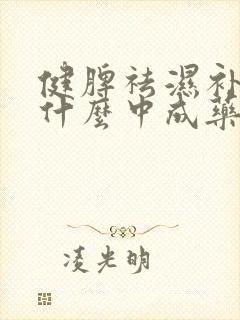 健脾祛濕补
什麼中成藥
凌光明